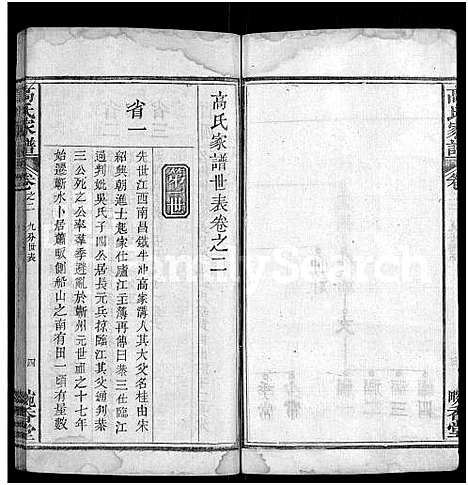 高氏家譜
高氏家譜世表卷之二
第一世
省一
先世江西南昌鐵牛冲高家溝人其大父名桂由宋
紹興朝進士起家仕廬江主薄再傳曰葵三仕臨江
通判妣吳氏子四公居長元兵掠臨江其父通判葵
三公死之公率羣季避亂於蘄州元世祖之十七年
始遷蘄水卜居蕭馭側船山之南有田一頃有星數
高氏家譜
卷之二
九分世表
四
FamilySearch